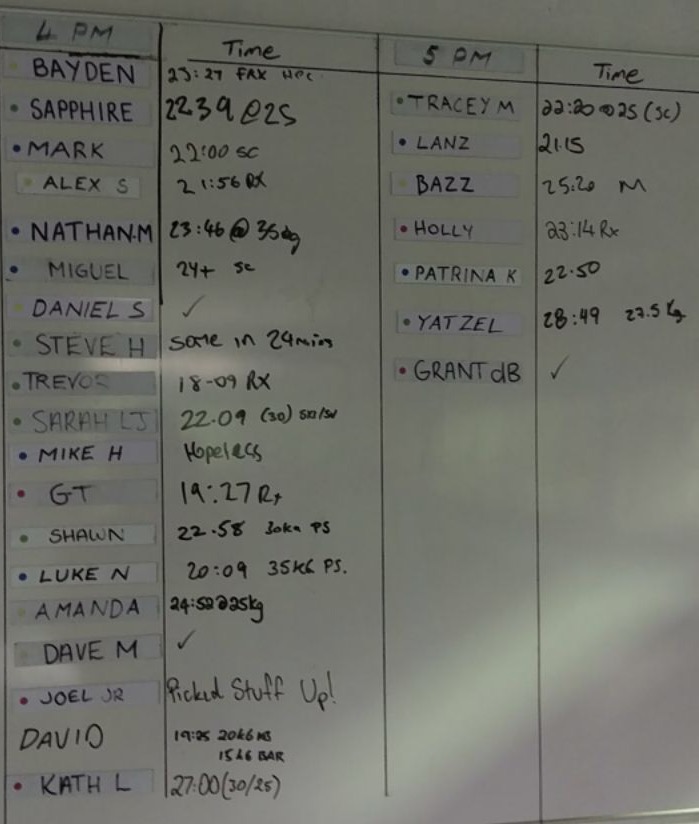 4 PM Time
BAYDEN 23:27
SAPPHIRE 2239 @25
MARK 22:00 SC
ALEX S 21:56 RX
NATHAN.M 23:46 @ 35kg
MIGUEL 24+ SC
DANIEL S ✓
STEVE H some in 24mins
TREVOR 18-09 RX
SARAH LJ 22.09 (30)
MIKE H Hopeless
GT 19:27 Rx
SHAWN 22.58 30kg PS
LUKE N 20:09 35KG PS.
AMANDA 24:52@25kg
DAVE M ✓
JOEL JR Picked Stuff Up!
DAVID 19:25 20KG KB
15KG BAR
KATH L 27:00 (30/25)
5 PM Time
TRACEY M 22:20 @25 (SC)
LANZ 21.15
BAZZ 25:20 M
HOLLY 23:14 Rx
PATRINA K 22.50
YATZEL 28:49 27.5 Kg
GRANT dB ✓